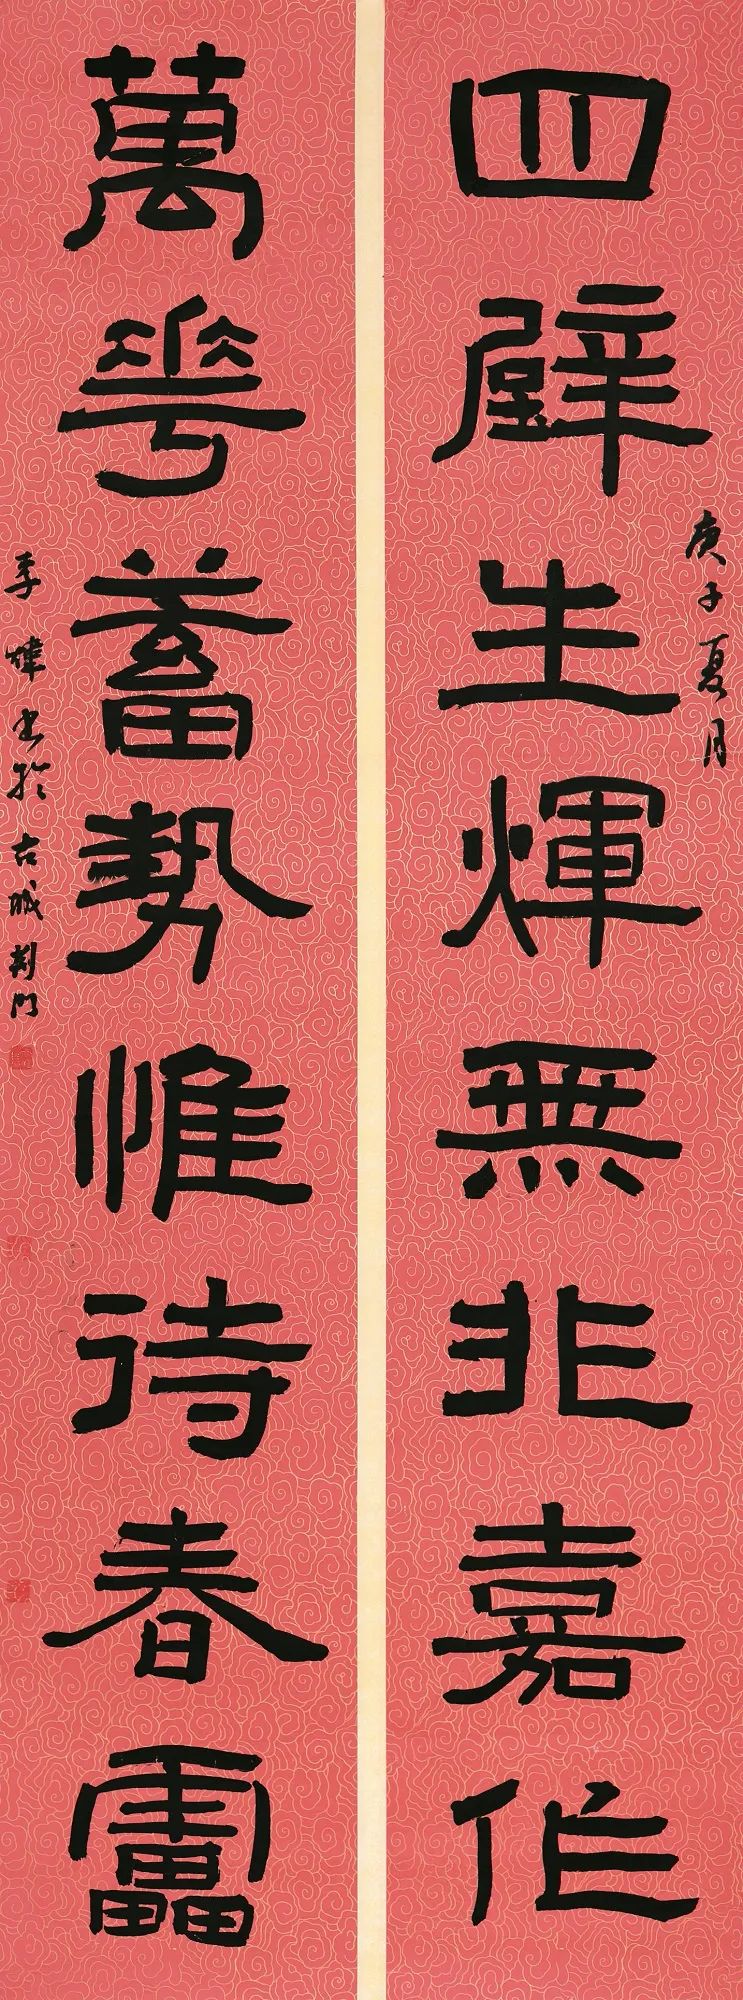 庚子夏月
四壁生輝無非嘉作
萬花蓄勢惟待春靁
季煒書於古城荆門